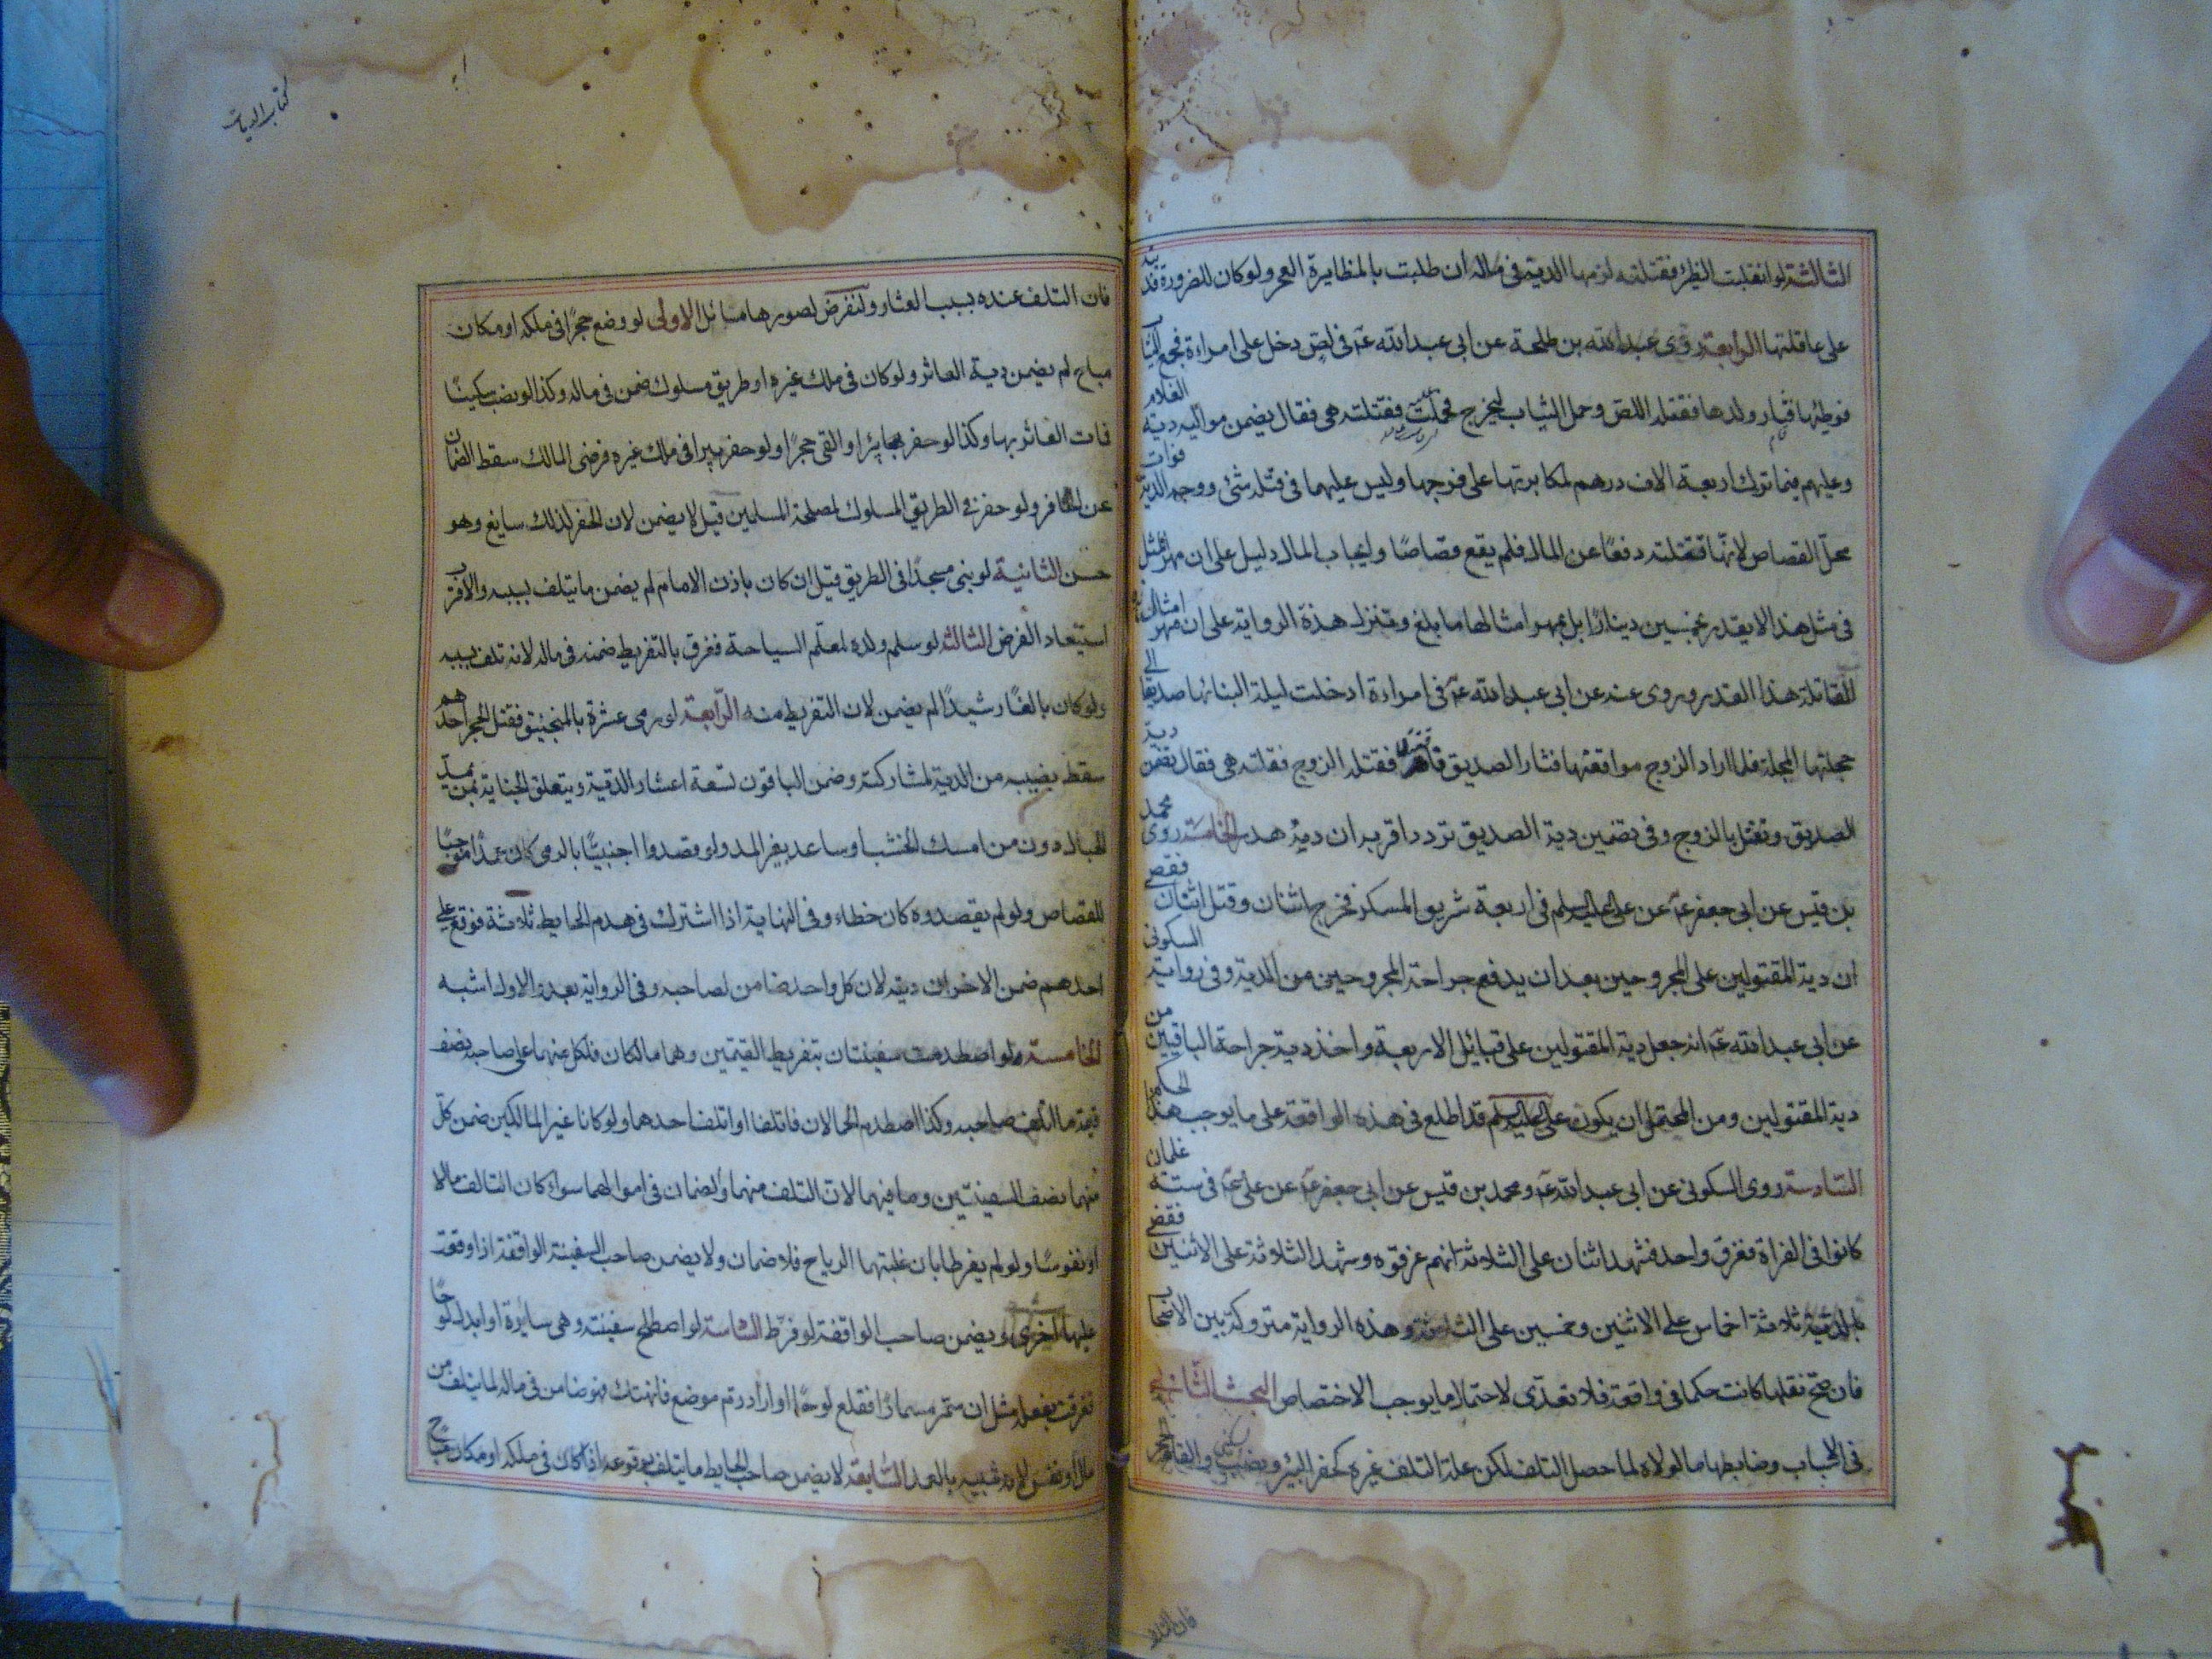 الثالثة لو انقلبت الظئر فقتلته لزمها الدية في ماله ان طلبت بالمظايرة الفخر ولو كان للضرورة فديته
على عاقلتها الرابعة روى عبد الله بن طلحة عن ابي عبد الله عه في لص دخل على امراءة فجمع الثياب
فوطئها فثار ولدها فقتله اللص وحمل الثياب ليخرج فحملت عليه فقتلته هي فقال يضمن مواليه دية الغلام
وعليهم فيما ترك اربعة الاف درهم لمكابرتها على فرجها وليس عليها في قتله شئ ووجه الدية فوات
محل القصاص لانها قتلته دفعا عن المال فلم يقع قصاصا وايجاب المال دليل على ان مهر المثل
في مثل هذا لا يقدر بخمسين دينارا بل بمهر امثالها ما بلغ وتنزل هذه الرواية على ان مهر امثال
القاتلة هذا القدر وروى عنه عن ابي عبد الله عه في امراءة ادخلت ليلة البناء بها صديقا الى
حجلتها فلما اراد الزوج مواقعتها فثار الصديق فاقتتلا فقتله الزوج فقتلته هي فقال تضمن دية
الصديق وتقتل بالزوج وفي تضمين دية الصديق تردد اقربه ان دمه هدر الخامسة روى محمد
بن قيس عن ابي جعفر عه عن علي عليه السلم في اربعة شربوا المسكر فجرح اثنان وقتل اثنان فقضى
ان دية المقتولين على المجروحين بعد ان يدفع جراحة المجروحين من الدية وفي رواية السكوني
عن ابي عبد الله عه انه جعل دية المقتولين على قبائل الاربعة واخذ دية جراحة الباقيين من
دية المقتولين ومن المحتمل ان يكون علي عليه السلم قد اطلع في هذه الواقعة على ما يوجب هذا الحكم
السادسة روى السكوني عن ابي عبد الله عه ومحمد بن قيس عن ابي جعفر عه عن علي عه في ستة غلمان
كانوا في الفراة فغرق واحد فشهد اثنان على الثلاثة انهم غرقوه وشهد الثلاثة على الاثنين فقضى
بالدية ثلاثة اخماس على الاثنين وخمسين على الثلاثة وهذه الرواية متروكة بين الاصحاب
فان صح نقلها كانت حكما في واقعة فلا تعدى لاحتمال ما يوجب الاختصاص البحث الثاني
في الاسباب وضابطها ما لولاه لما حصل التلف لكن علة التلف غيره كحفر البئر ونصب سكين والقاء الحجر
فان التلف
كتاب الديات
فان التلف عنده بسبب العثار ولنفرض لصورها مسائل الاولى لو وضع حجرا في ملكه او مكان
مباح لم يضمن دية العاثر ولو كان في ملك غيره او طريق مسلوك ضمن في ماله وكذا لو نصب سكينا
فمات العاثر بها وكذا لو حفر بئرا او القى حجرا ولو حفر بيرا في ملك غيره فرضى المالك سقط الضمان
عن الحافر ولو حفر في الطريق المسلوك لمصلحة المسلمين قيل لا يضمن لان الحفر لذلك سايغ وهو
حسن الثانية لو بنى مسجدا في الطريق قيل ان كان باذن الامام لم يضمن ما يتلف بسببه والاقرب
استبعاد الفرض الثالثة لو سلم ولده لمعلم السباحة فغرق بالتفريط ضمنه في ماله لانه تلف بسببه
ولو كان بالغا رشيدا لم يضمن لان التفريط منه الرابعة لو رمى عشرة بالمنجنيق فقتل الحجر احدهم
سقط نصيبه من الدية لمشاركته وضمن الباقون تسعة اعشار الدية ويتعلق الجناية بمن يمد
الحبال دون من امسك الخشب او ساعد بغير المد ولو قصدوا اجنبيا بالرمى كان عمدا موجبا
للقصاص ولو لم يقصدوه كان خطاء وفي النهاية اذا اشترك في هدم الحايط ثلاثة فوقع على
احدهم ضمن الاخران ديته لان كل واحد ضامن لصاحبه وفي الرواية بعد والاول اشبه
الخامسة لو اصطدمت سفينتان بتفريط القيمين وهما مالكان فلكل منهما على صاحبه نصف
قيمة ما اتلف صاحبه وكذا اصطدم الحمالان فاتلفا او اتلف احدهما ولو كانا غير المالكين ضمن كل
منهما نصف السفينتين وما فيهما لان التلف منهما والضمان في اموالهما سواء كان التالف مالا
او نفوسا ولو لم يفرطا بان غلبتهما الرياح فلا ضمان ولا يضمن صاحب السفينة الواقفة اذا وقعت
عليها اخرى ويضمن صاحب الواقفة لو فرط السادسة لو اصطلح سفينته وهي سايرة او ابدل لوحا
فغرقت بفعله مثل ان سمر مسمارا فقلع لوحا او اراد رم موضع فانهتك فهو ضامن في ماله لما يتلف من
مال او نفس لانه شبيه بالعمد السابعة لا يضمن صاحب الحايط ما يتلف بوقوعه اذا كان في ملكه او مكان مباح